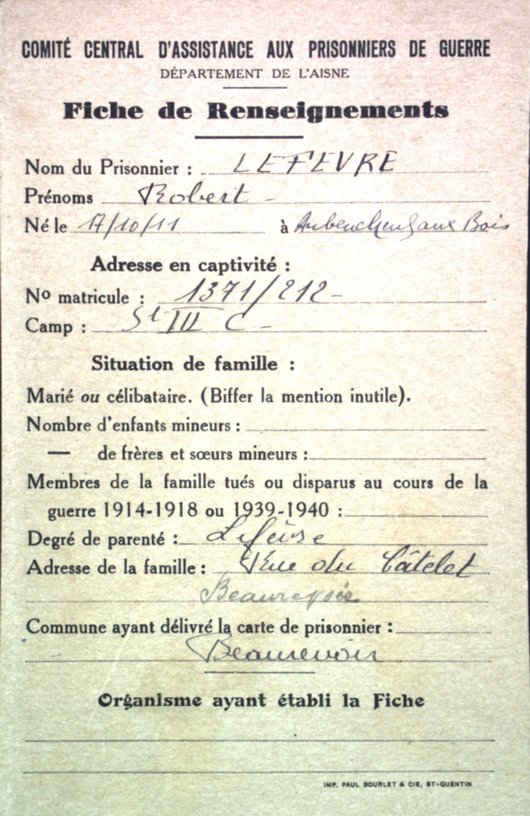 COMITÉ CENTRAL D'ASSISTANCE AUX PRISONNIERS DE GUERRE
DÉPARTEMENT DE L'AISNE
Fiche de Renseignements
Nom du Prisonnier : LEFEVRE
Prénoms Robert -
Né le 17/10/11 à Aubencheul aux Bois
Adresse en captivité :
No matricule : 1371/212 -
Camp : St III C -
Situation de famille :
Marié ou célibataire. (Biffer la mention inutile).
Nombre d'enfants mineurs :
— de frères et sœurs mineurs :
Membres de la famille tués ou disparus au cours de la
guerre 1914-1918 ou 1939-1940 :
Degré de parenté : Lefèvre
Adresse de la famille : Rue du Câtelet
Commune ayant délivré la carte de prisonnier :
Beaurevoir
Organisme ayant établi la Fiche
IMP. PAUL BOURLET & CIE, ST-QUENTIN